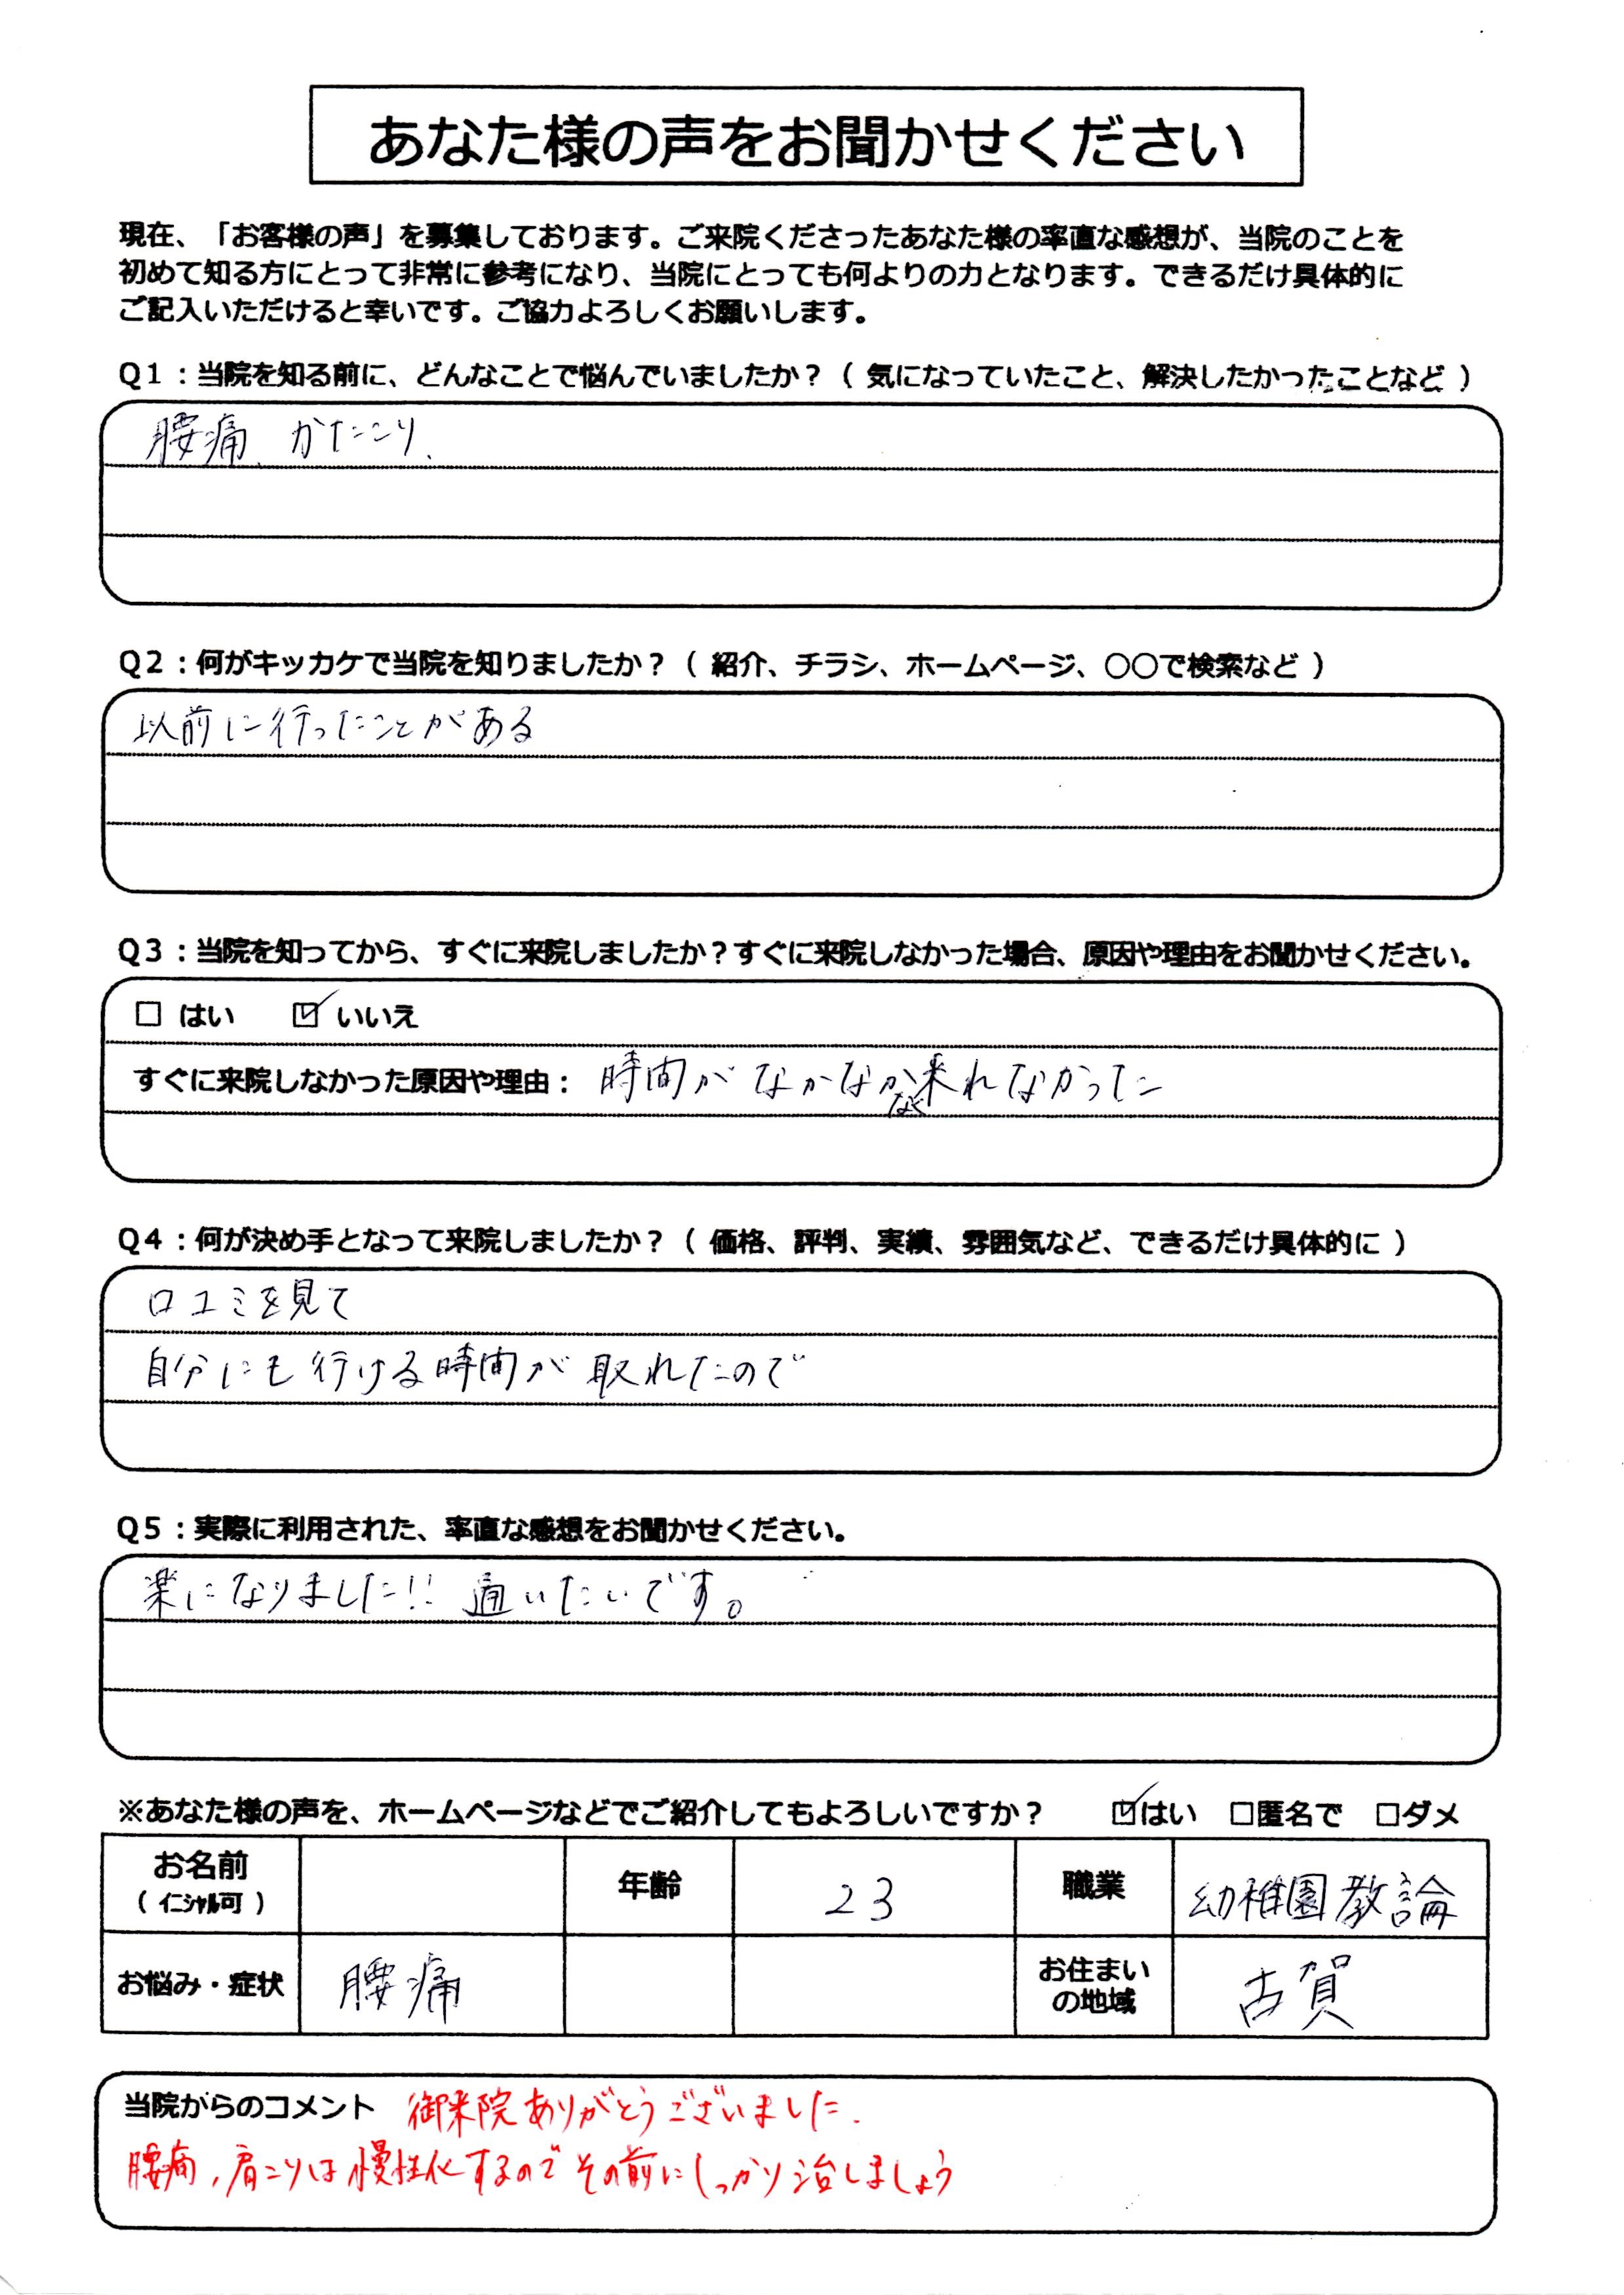 あなた様の声をお聞かせください
現在、「お客様の声」を募集しております。ご来院くださったあなた様の率直な感想が、当院のことを
初めて知る方にとって非常に参考になり、当院にとっても何よりの力となります。できるだけ具体的に
ご記入いただけると幸いです。ご協力よろしくお願いします。
Q1：当院を知る前に、どんなことで悩んでいましたか？（ 気になっていたこと、解決したかったことなど ）
腰痛、かたこり、
Q2：何がキッカケで当院を知りましたか？（ 紹介、チラシ、ホームページ、○○で検索など ）
以前に行ったことがある
Q3：当院を知ってから、すぐに来院しましたか？すぐに来院しなかった場合、原因や理由をお聞かせください。
□ はい ☑ いいえ
すぐに来院しなかった原因や理由： 時間がなかなかなく来れなかった
Q4：何が決め手となって来院しましたか？（ 価格、評判、実績、雰囲気など、できるだけ具体的に ）
口コミを見て
自分にも行ける時間が取れたので
Q5：実際に利用された、率直な感想をお聞かせください。
楽になりました!! 通いたいです。
※あなた様の声を、ホームページなどでご紹介してもよろしいですか？ ☑はい □匿名で □ダメ
お名前 年齢 23 職業 幼稚園教諭
（ イニシャル可 ）
お悩み・症状 腰痛 お住まい
の地域 古賀
当院からのコメント 御来院ありがとうございました.
腰痛,肩こりは慢性化するのでその前にしっかり治しましょう